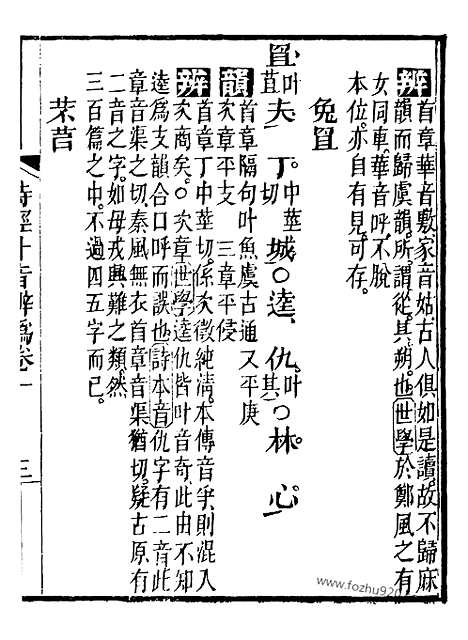 辨首章華音敷家音姑古人俱如是讀故不歸麻
韻而歸虞韻所謂從其朔也世學於鄭風之有
女同車華音呼不脫
本位亦自有見可存
兔罝
罝叶苴夫丁中莖切城○逵仇叶其○林心
韻首章隔句叶魚虞古通又平庚
次章平支 三章平侵
辨首章丁中莖切係次徵純淸本傳音爭則混入
次商矣○次章世學逵仇皆叶音奇此由不知
逵爲支韻合口呼而誤也詩本音仇字有二音此
章音渠之切秦風無衣首章音渠猶切疑古原有
二音之字如母戎興難之類然
三百篇之中不過四五字而已
芣苢
詩經叶音辨譌卷一
三
www.fozhu920